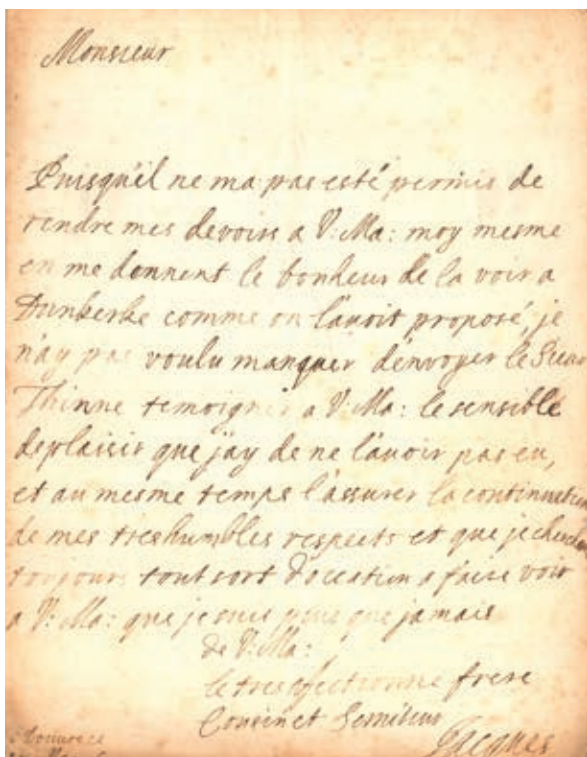 Monsieur
Puisqu'il ne ma pas esté permis de
rendre mes devoirs a V: Ma: moy mesme
en me donnent le bonheur de la voir a
Dunkerke comme on l'avoit proposé, je
n'ay pas voulu manquer d'envoyer le Sieur
Thinne temoigner a V: Ma: le sensible
deplaisir que j'ay de ne l'avoir pas eu,
et au mesme temps l'assurer la continuation
de mes treshumbles respects et que je
toujours tout sort d'occation a faire voir
a V: Ma: que je suis plus que jamais
de V: Ma:
le tres affectionné frere
Cousin et Serviteur
Jacques